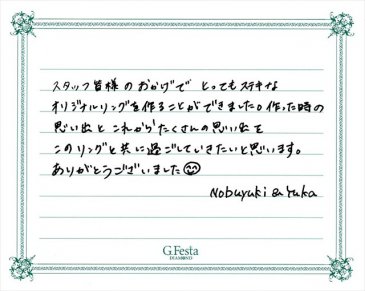 スタッフ皆様のおかげで とってもステキな
オリジナルリングを作ることができました。作った時の
思い出と これから たくさんの思い出を
このリングと共に過ごしていきたいと思います。
ありがとうございました😊
Nobuyuki & Yuka
G.Festa
DIAMOND